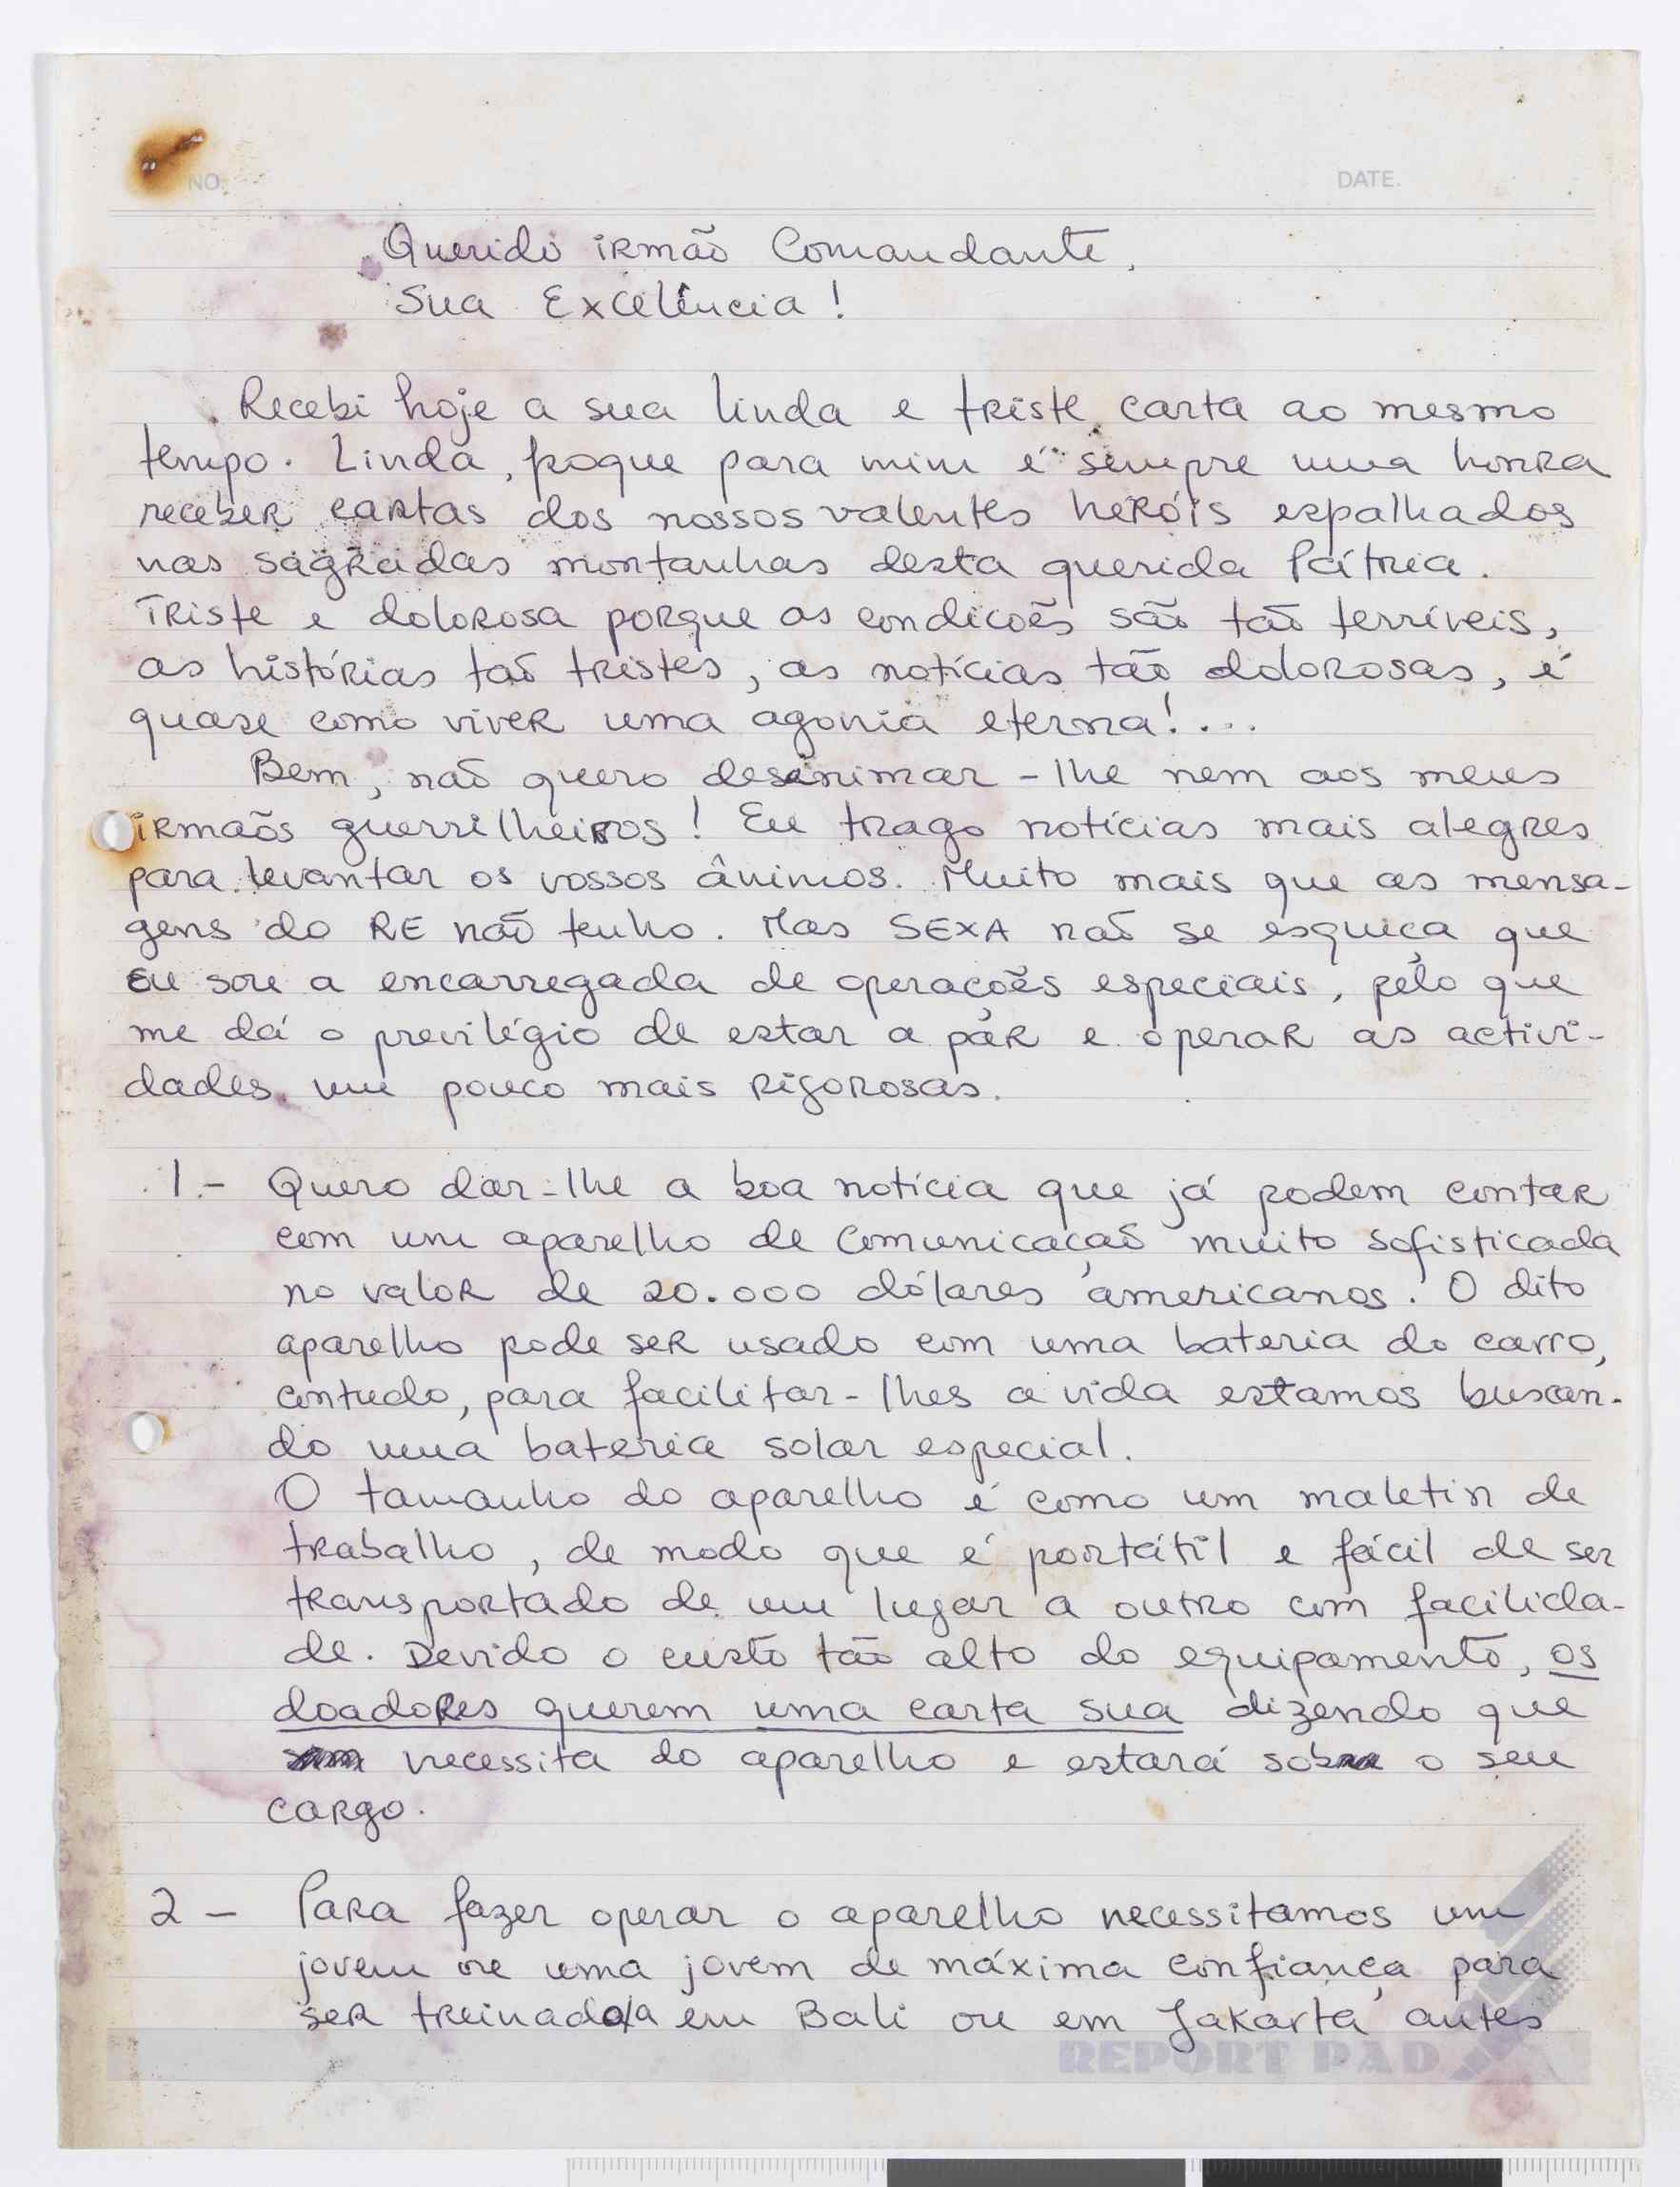 NO. DATE.
Querido irmão Comandante,
Sua Excelência!
Recebi hoje a sua linda e triste carta ao mesmo
tempo. Linda, poque para mim é sempre uma honra
receber cartas dos nossos valentes heróis espalhados
nas sagradas montanhas desta querida Pátria.
Triste e dolorosa porque as condicoẽs são tão terríveis,
as histórias taõ tristes, as notícias tão dolorosas, é
quase como viver uma agonia eterna!...
Bem, naõ quero desanimar-lhe nem aos meus
irmaõs guerrilheiros! Eu trago notícias mais alegres
para levantar os vossos ânimos. Muito mais que as mensa-
gens do RE não tenho. Mas SEXA naõ se esqueça que
eu sou a encarregada de operaçoẽs especiais, pelo que
me dá o previlégio de estar a par e operar as activi-
dades um pouco mais rigorosas.
1.- Quero dar-lhe a boa notícia que já podem contar
com um aparelho de comunicaçaõ muito sofisticada
no valor de 20.000 dólares americanos. O dito
aparelho pode ser usado com uma bateria do carro,
contudo, para facilitar-lhes a vida estamos buscan-
do uma bateria solar especial.
O tamanho do aparelho é como um maletin de
trabalho, de modo que é portátil e fácil de ser
transportado de um lugar a outro com facilida-
de. Devido o custo tão alto do equipamento, os
doadores querem uma carta sua dizendo que
necessita do aparelho e estará sob o seu
cargo.
2 - Para fazer operar o aparelho necessitamos um
jovem ou uma jovem de máxima confiança para
ser treinado/a em Bali ou em Jakarta antes
REPORT PAD